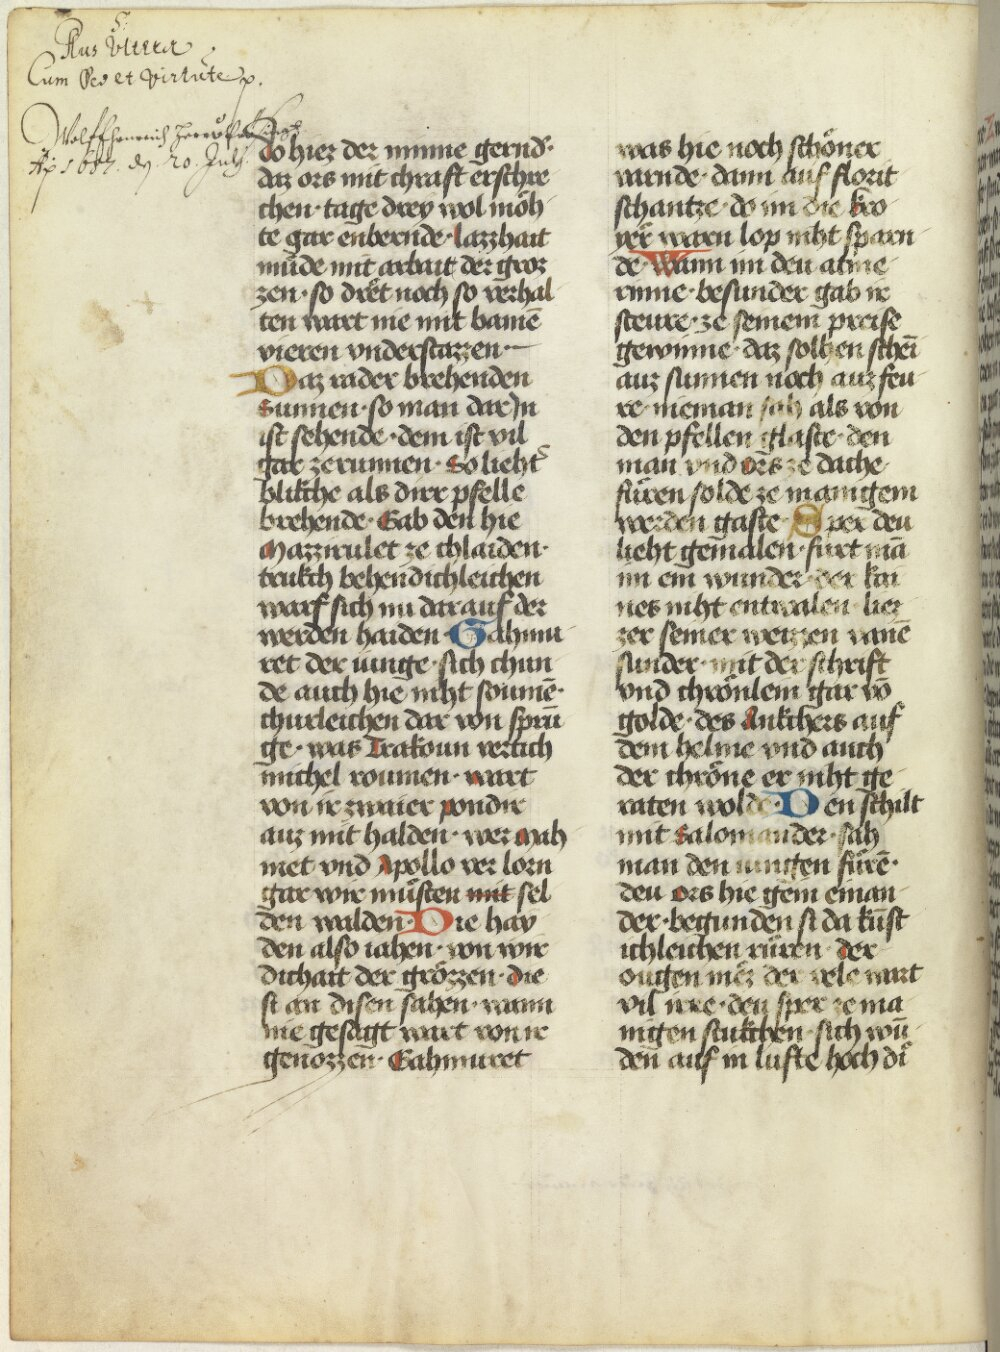 Plus Ultra
Cum Deo et Virtute p.
20. July
do hier der minne gernd͛·
daz ors mit chraft erschre
chen· tage drey wol möh
te gar enbernde· lazzhait
müde mit arbait der groz
zen· so dræt noch so verhal
ten wart nie mit baniē
vieren vnderstazzen·
Daz rader brehenden
Sunnen· so man dar In
ist sehende· dem ist vil
gar zerunnen· So lieht͛
blikche als dirr pfelle
brehende· Gab den hie
Mazzirulet ze chlaiden·
trukch behendichleichen
warf sich nu darauf der
werden haiden· Gahmu
ret der iunge· sich chun
de auch hie niht soumē·
churleichen dar von sprū
ge· was Trakoun vertich
michel roumen· wart
von ir zwaier pondir
auz mit halden· wer Mah
met vnd Apollo ver lorn
gar wir müsten mit sel
den walden· Die hay
den also iahen· von wir
dichait der grözzen· die
si an disen sahen· wann
nie gesagt wart von ir
genozzen· Gahmuret
was hie noch schöner
varnde· dann auf florit
schantze· do im die kro
yer̄ warn lop niht sparn
de· Wann im deu atine
rinne· besunder gab ir
steure· ze seinem preise
gewinne· daz solhen schei̅
auz sunnen noch auz feu
re· nieman sah als von
den pfellen glaste· den
man vnd Ors ze dache·
füren solde ze manigem
werden gaste· Sper deu
lieht gemalen· furt mā
im ein wunder· der kai
nes niht entwalen· liez
zer seiner weizzen vanē
sunder· mit der schrift
vnd chrönlein gar vō
golde· des Ankchers auf
dem helme vnd auch
der chröne er niht ge
raten wolde· Den schilt
mit Salomander· sah
man den iungen fürē·
deu Ors hie gein einan
der· begunden si da kūst
ichleichen rüren· der
ougen mez der vele wart
vil irre· den sper ze ma
nigen stukchen· sich wū
den auf in lufte hoch di͛